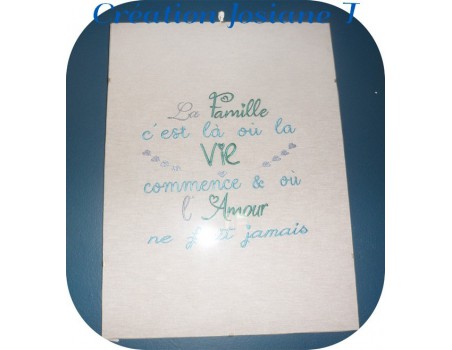 Creation Josiane T
La Famille
c'est là où la
Vie
commence & où
l'Amour
ne jamais